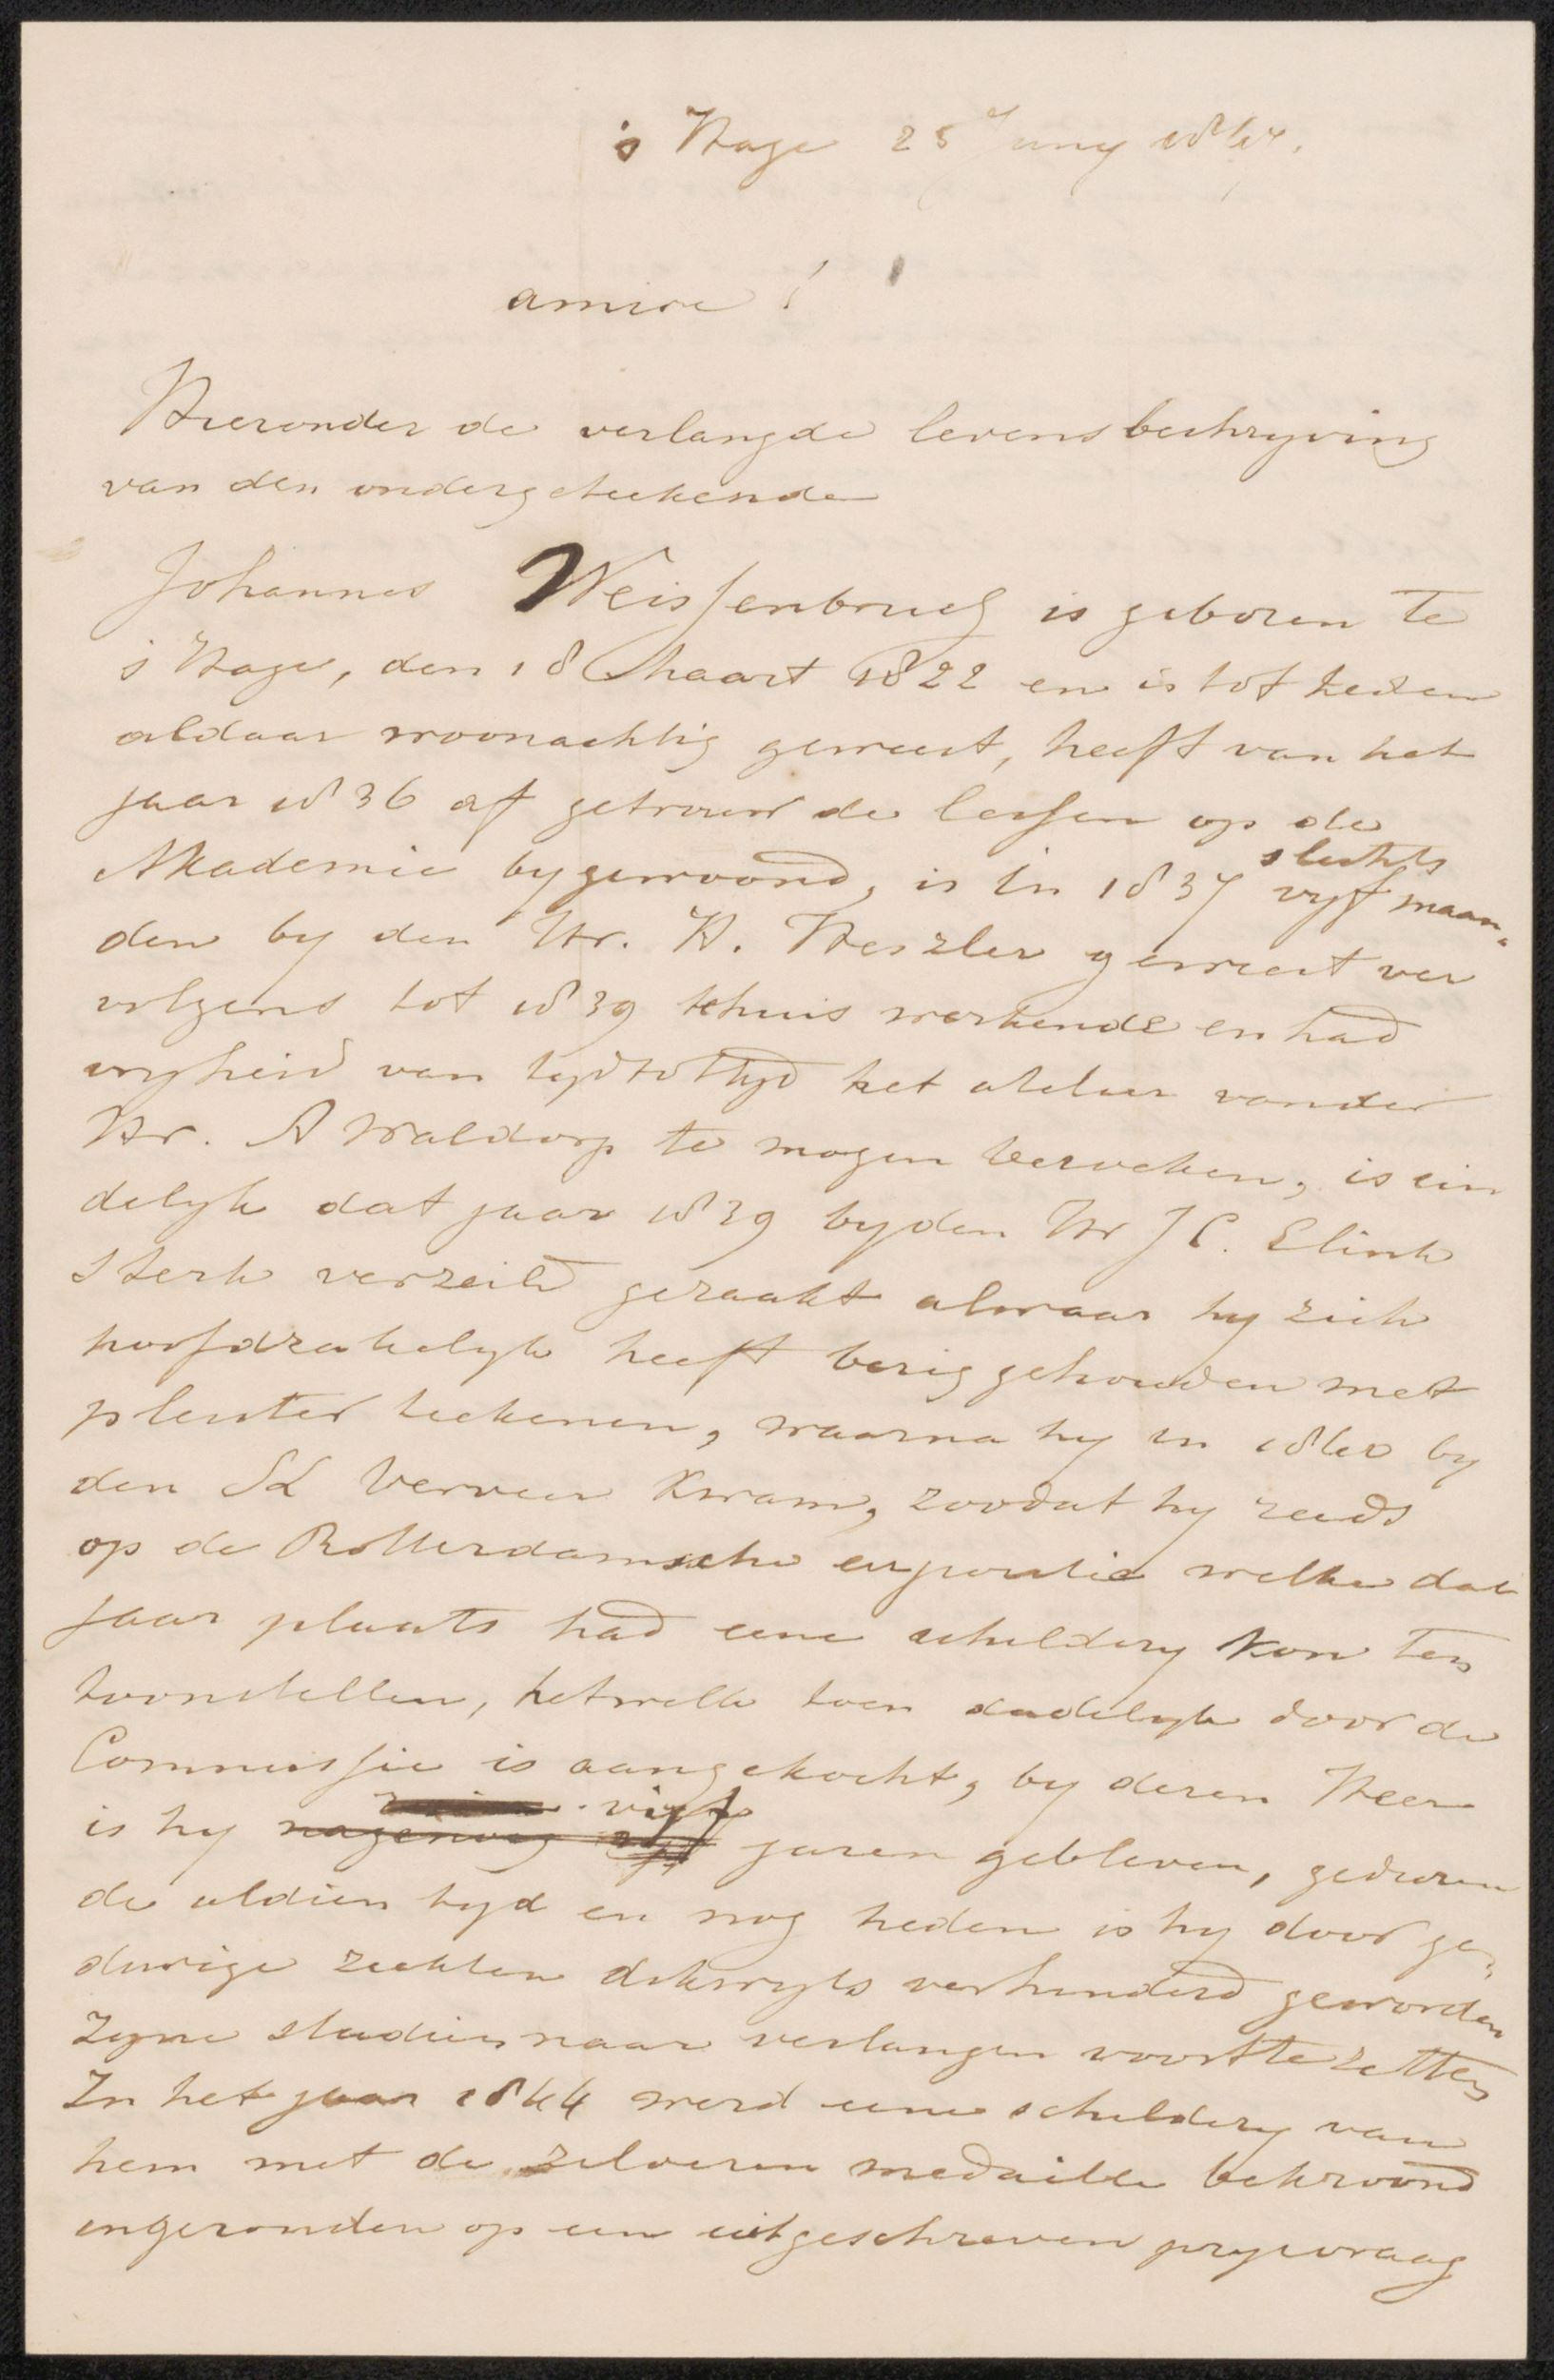 's Hage 25 Juny
amice!
Hieronder de verlangde levensbeschryving
van den ondergeteekende
Johannes Weissenbruch is geboren te
's Hage, den 18 Maart 1822 en is tot heden
aldaar woonachtig geweest, heeft van het
jaar 1836 af getrouw de lessen op de
Akademie bygewoond, is in 1837 slechts vyf maan-
den by den Hr. H. Heszler geweest ver
volgens tot 1839 tehuis werkende en had
vryheid van tyd tot tyd het atelier van den
Hr. A Waldorp te mogen bezoeken, is ein
delyk dat jaar 1839 by den Hr J C. Elink
Sterk verzeild geraakt alwaar hy zich
hoofdzakelyk heeft bezig gehouden met
pleister teekenen, waarna hy in by
den SL Verveer kwam, zoodat hy reeds
op de Rotterdamsche expositie welke dat
jaar plaats had eene schildery kon ten
toonstellen, hetwelk toen dadelyk door de
Commissie is aangekocht, by dezen Heer
is hy nagenoeg vyf jaren gebleven, geduren
de aldien tyd en nog heden is hy door ge-
durige ziekten dikwyls verhinderd geworden
zyne studien naar verlangen voort te zetten
In het jaar 1844 werd eene schildery van
hem met de zilveren medaille bekroond
ingezonden op een uitgeschreven prysvraag